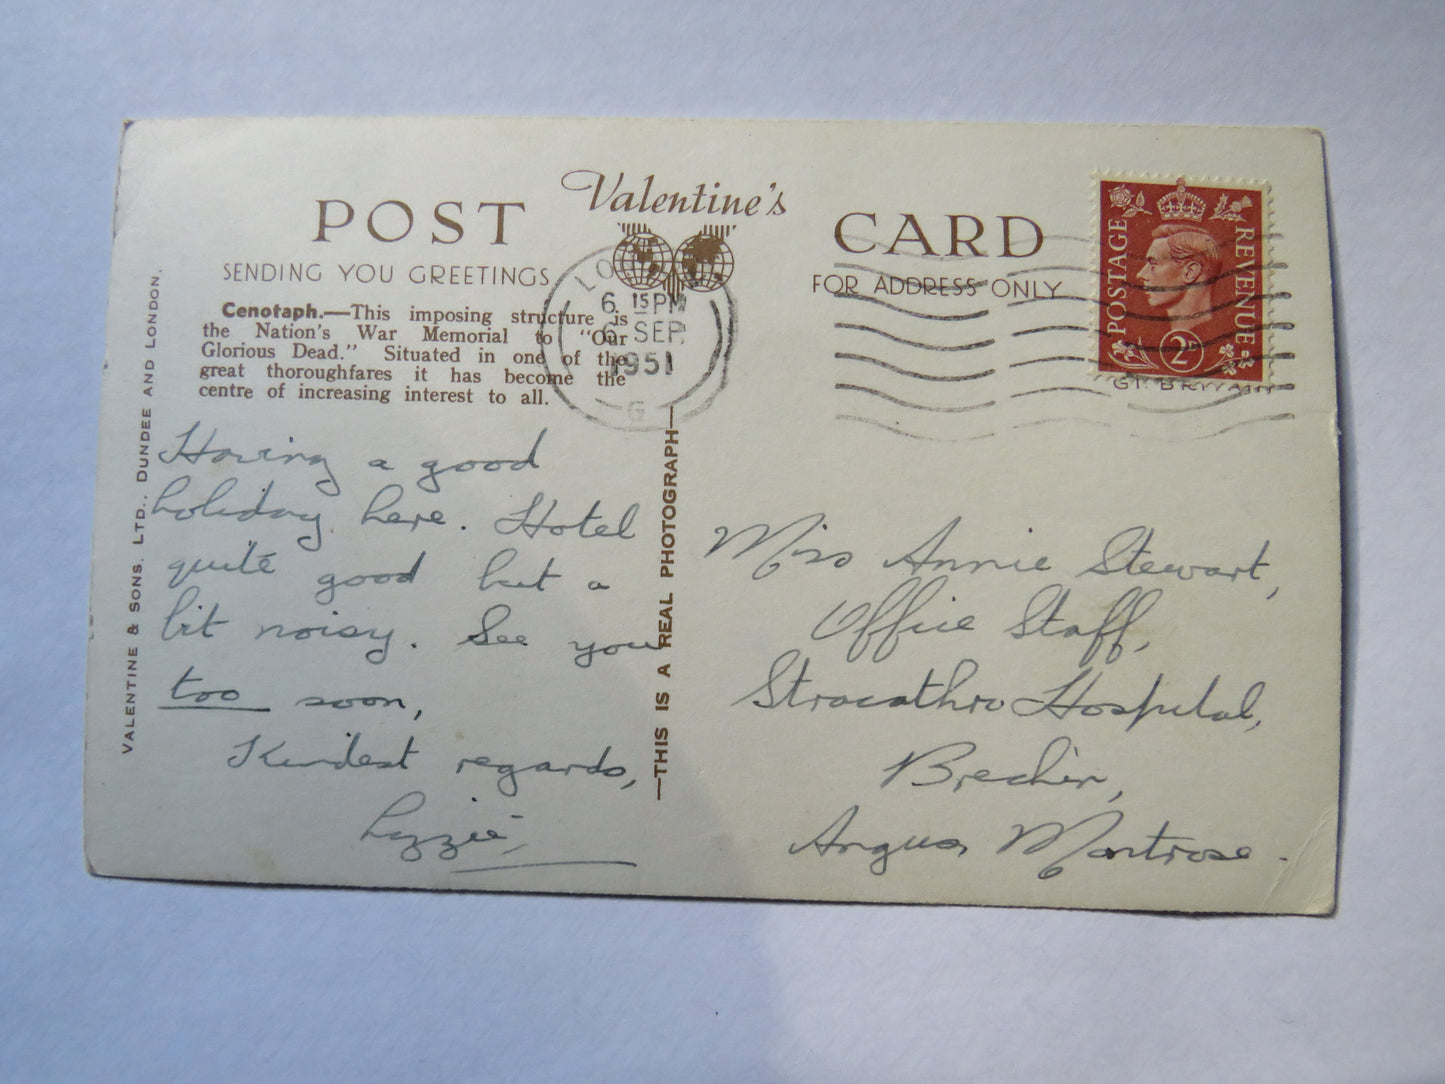 POST
Valentine's
CARD
SENDING YOU GREETINGS
FOR ADDRESS ONLY
Cenotaph.—This imposing structure is
the Nation's War Memorial to "Our
Glorious Dead." Situated in one of the
great thoroughfares it has become the
centre of increasing interest to all.
VALENTINE & SONS, LTD., DUNDEE AND LONDON.
—THIS IS A REAL PHOTOGRAPH—
6 15 PM
6 SEP
1951
G
POSTAGE
REVENUE
2D
Having a good
holiday here. Hotel
quite good but a
bit noisy. See you
too soon,
Kindest regards,
Lizzie,
Miss Annie Stewart,
Office Staff,
Stracathro Hospital,
Brechin,
Angus, Montrose.